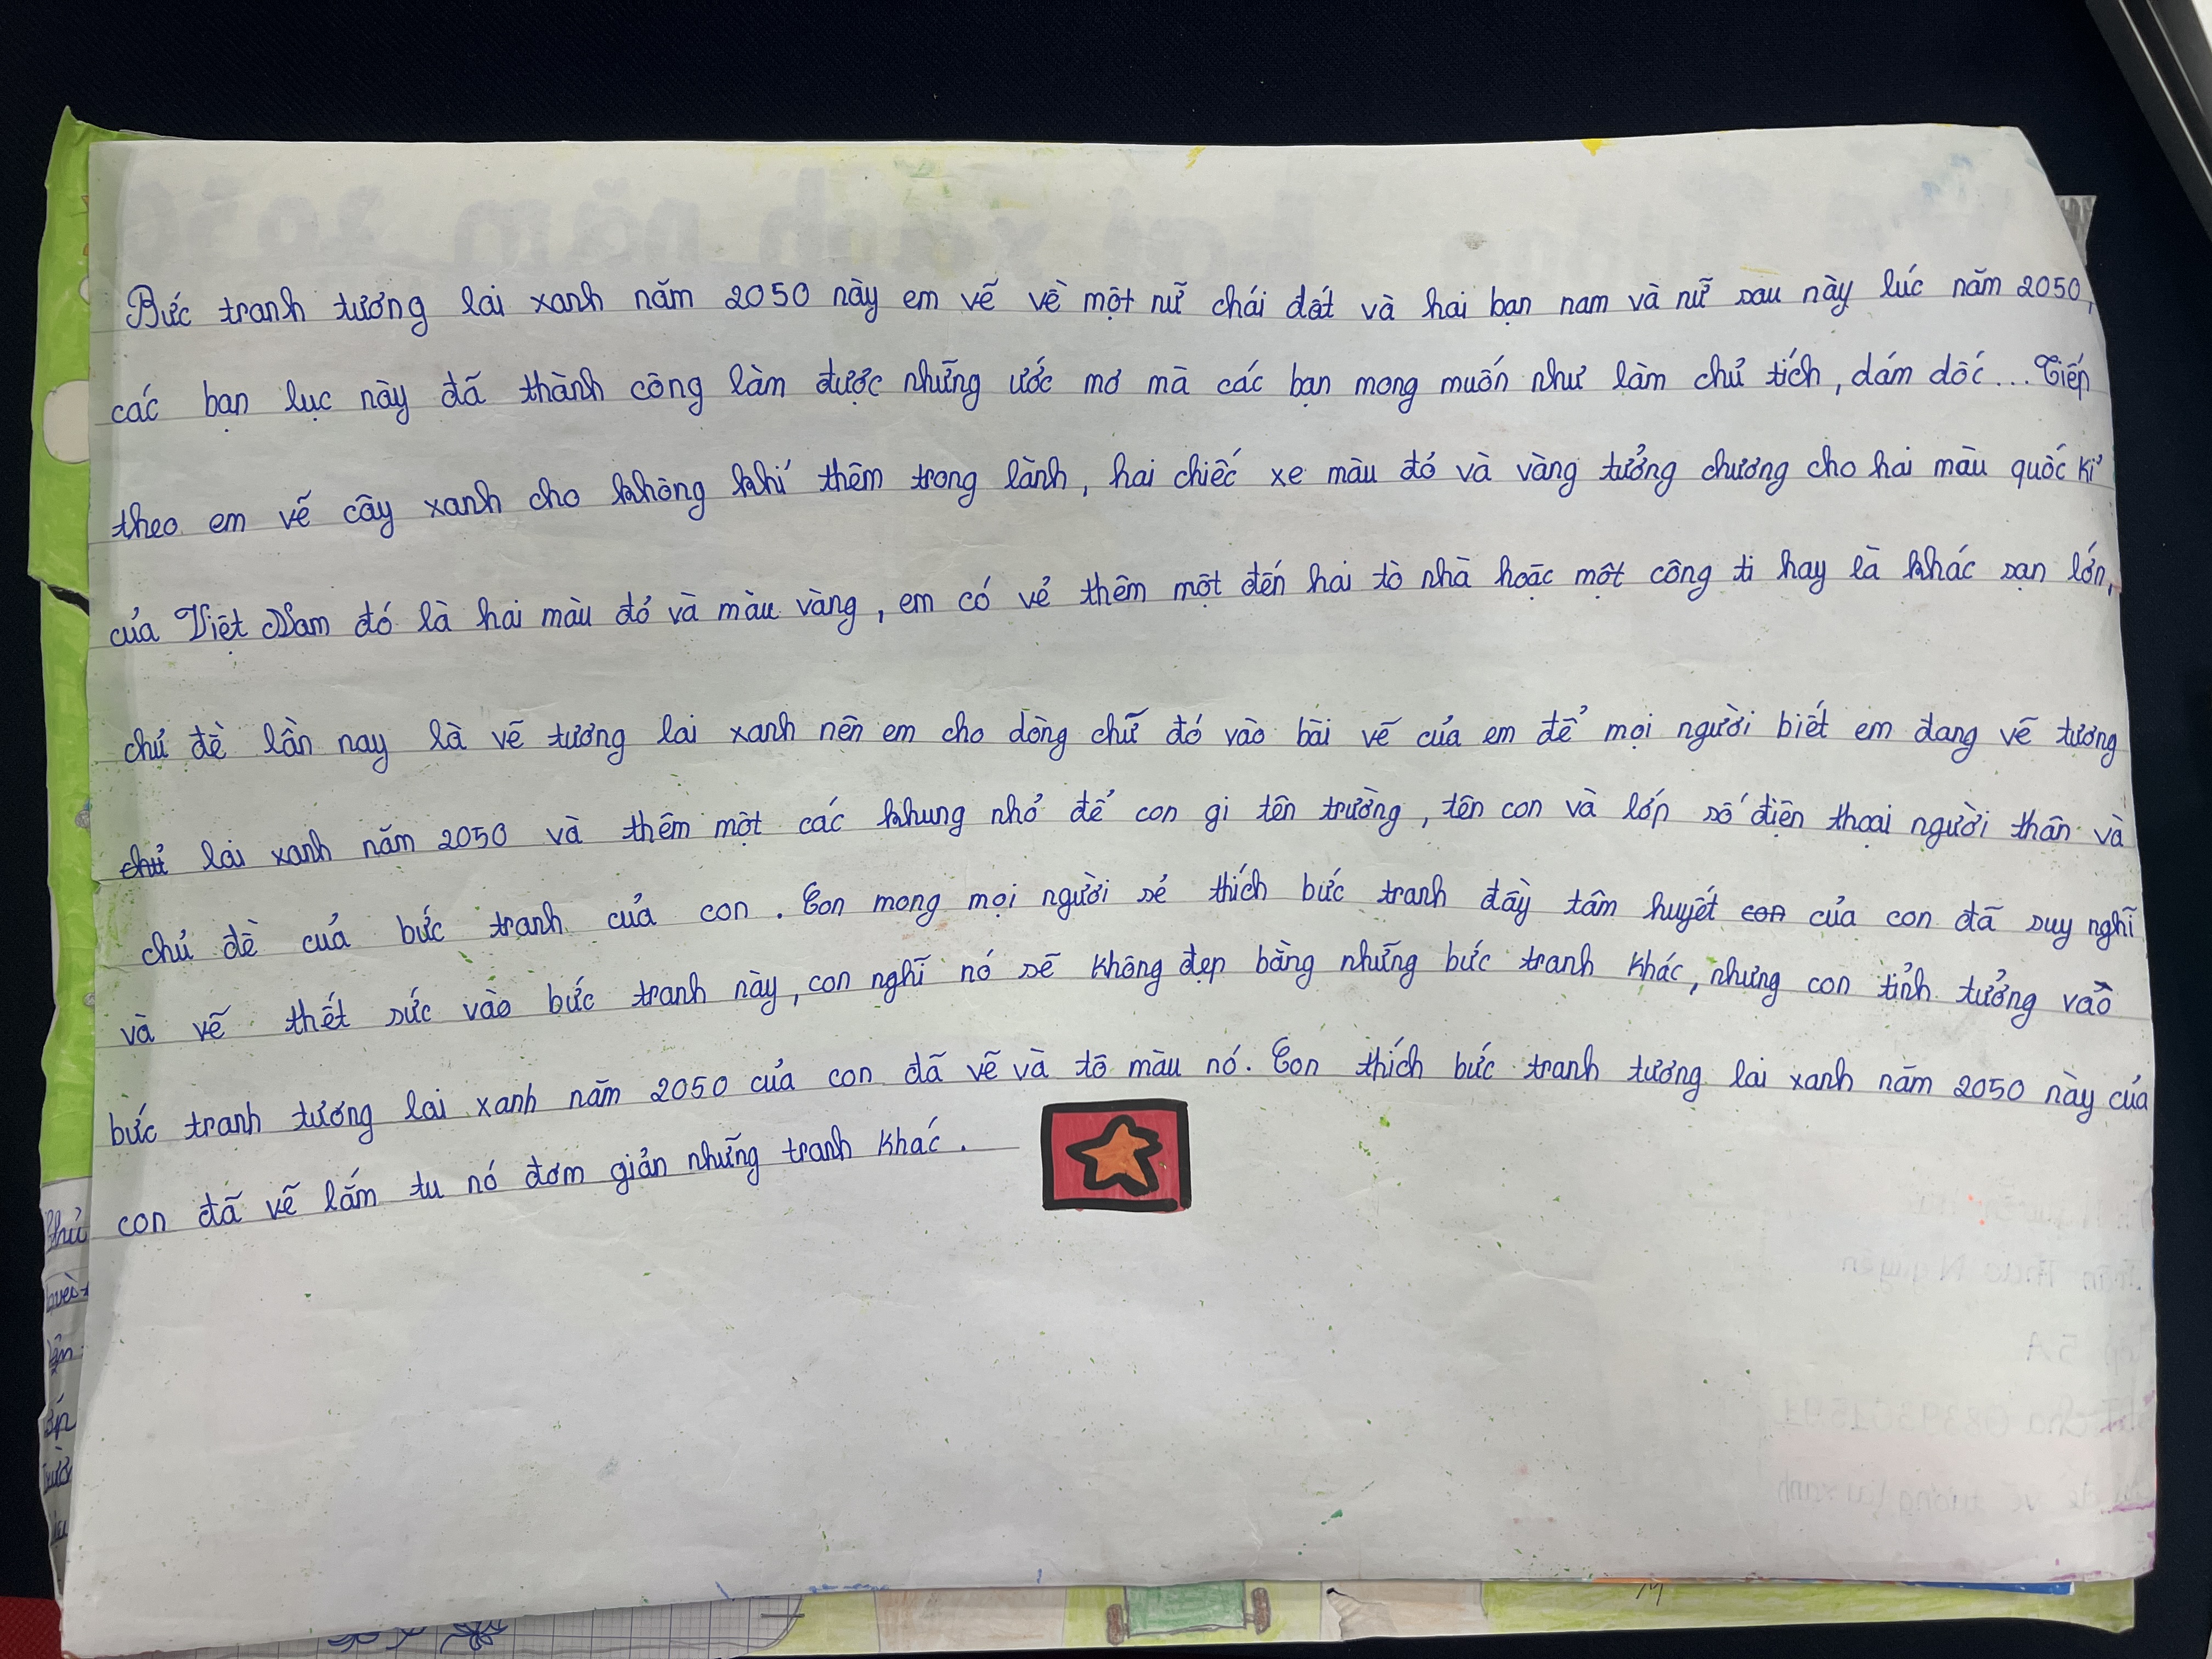 Bức tranh tương lai xanh năm 2050 này em vẽ về một nữ chái đất và hai bạn nam và nữ sau này lúc năm 2050,
các bạn lục này đã thành công làm được những ước mơ mà các bạn mong muốn như làm chủ tích, dám dốc... Tiếp
theo em vẽ cây xanh cho không khí thêm trong lành, hai chiếc xe màu đỏ và vàng tưởng chương cho hai màu quốc kì
của Việt Nam đó là hai màu đỏ và màu vàng, em có vẻ thêm một đến hai tò nhà hoặc một công ti hay là khác sạn lớn,
chủ đề lần nay là vẽ tương lai xanh nên em cho dòng chữ đó vào bài vẽ của em để mọi người biết em đang vẽ tương
chủ lai xanh năm 2050 và thêm một các khung nhỏ để con gi tên trường, tên con và lớp số điện thoại người thân và
chủ đề của bức tranh của con. Con mong mọi người sẻ thích bức tranh đầy tâm huyết con của con đã suy nghĩ
và vẽ thết sức vào bức tranh này, con nghĩ nó sẽ không đẹp bằng những bức tranh khác, nhưng con tỉnh tưởng vào
bức tranh tương lai xanh năm 2050 của con đã vẽ và tô màu nó. Con thích bức tranh tương lai xanh năm 2050 này của
con đã vẽ lắm tu nó đơm giản những tranh khác.